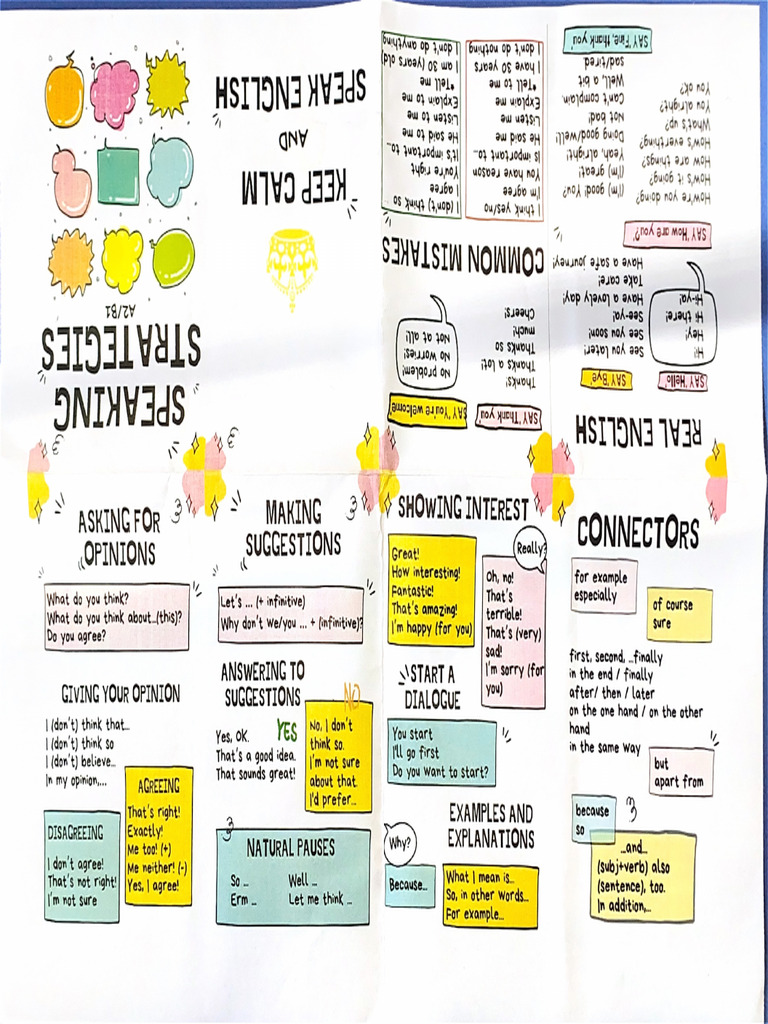 SPEAKING
STRATEGIES
A2/B1
KEEP CALM
AND
SPEAK ENGLISH
REAL ENGLISH
SAY 'Hello'
Hi!
Hey!
Hi there!
Hi-ya!
SAY 'Bye'
See you later!
See you soon!
See-ya!
Have a lovely day!
Take care!
Have a safe journey!
SAY 'How are you?'
How're you doing?
How's it going?
How are things?
How's everything?
What's up?
You alright?
You ok?
SAY 'Fine, thank you'
(I'm) good; You?
(I'm) great!
Yeah, alright.
Doing good/well!
Not bad.
Can't complain.
Well, a bit
sad/tired
SAY 'Thank you'
Thanks!
Thanks a lot!
Thanks so
much!
Cheers!
SAY 'You're welcome
No problem!
No worries!
Not at all!
COMMON MISTAKES
I think yes/no
I'm agree
You have reason
Is important to...
He said me
Listen me
Explain me
*Tell to me
I have 30 years
I don't do nothing
I (don't) think so
I agree
You're right
It's important to...
He said to me
Listen to me
Explain to me
*Tell me
I am 30 (years old)
I don't do anything
ASKING FOR
OPINIONS
What do you think?
What do you think about...(this)?
Do you agree?
GIVING YOUR OPINION
I (don't) think that...
I (don't) think so
I (don't) believe...
In my opinion,...
AGREEING
That's right!
Exactly!
Me too! (+)
Me neither! (-)
Yes, I agree!
DISAGREEING
I don't agree!
That's not right!
I'm not sure
MAKING
SUGGESTIONS
Let's ... (+ infinitive)
Why don't we/you ... + (infinitive)?
ANSWERING TO
SUGGESTIONS
YES
Yes, OK.
That's a good idea.
That sounds great!
NO
No, I don't
think so.
I'm not sure
about that.
I'd prefer...
NATURAL PAUSES
So ... Well ...
Erm ... Let me think ...
SHOWING INTEREST
Great!
How interesting!
Fantastic!
That's amazing!
I'm happy (for you)
Really?
Oh, no!
That's
terrible!
That's (very)
sad!
I'm sorry (for
you)
START A
DIALOGUE
You start
I'll go first
Do you want to start?
EXAMPLES AND
EXPLANATIONS
Why?
Because...
What I mean is...
So, in other words...
For example...
CONNECTORS
for example
especially
of course
sure
first, second, ...finally
in the end / finally
after/ then / later
on the one hand / on the other
hand
in the same way
but
apart from
because
so
...and...
(subj+verb) also
(sentence), too.
In addition,...